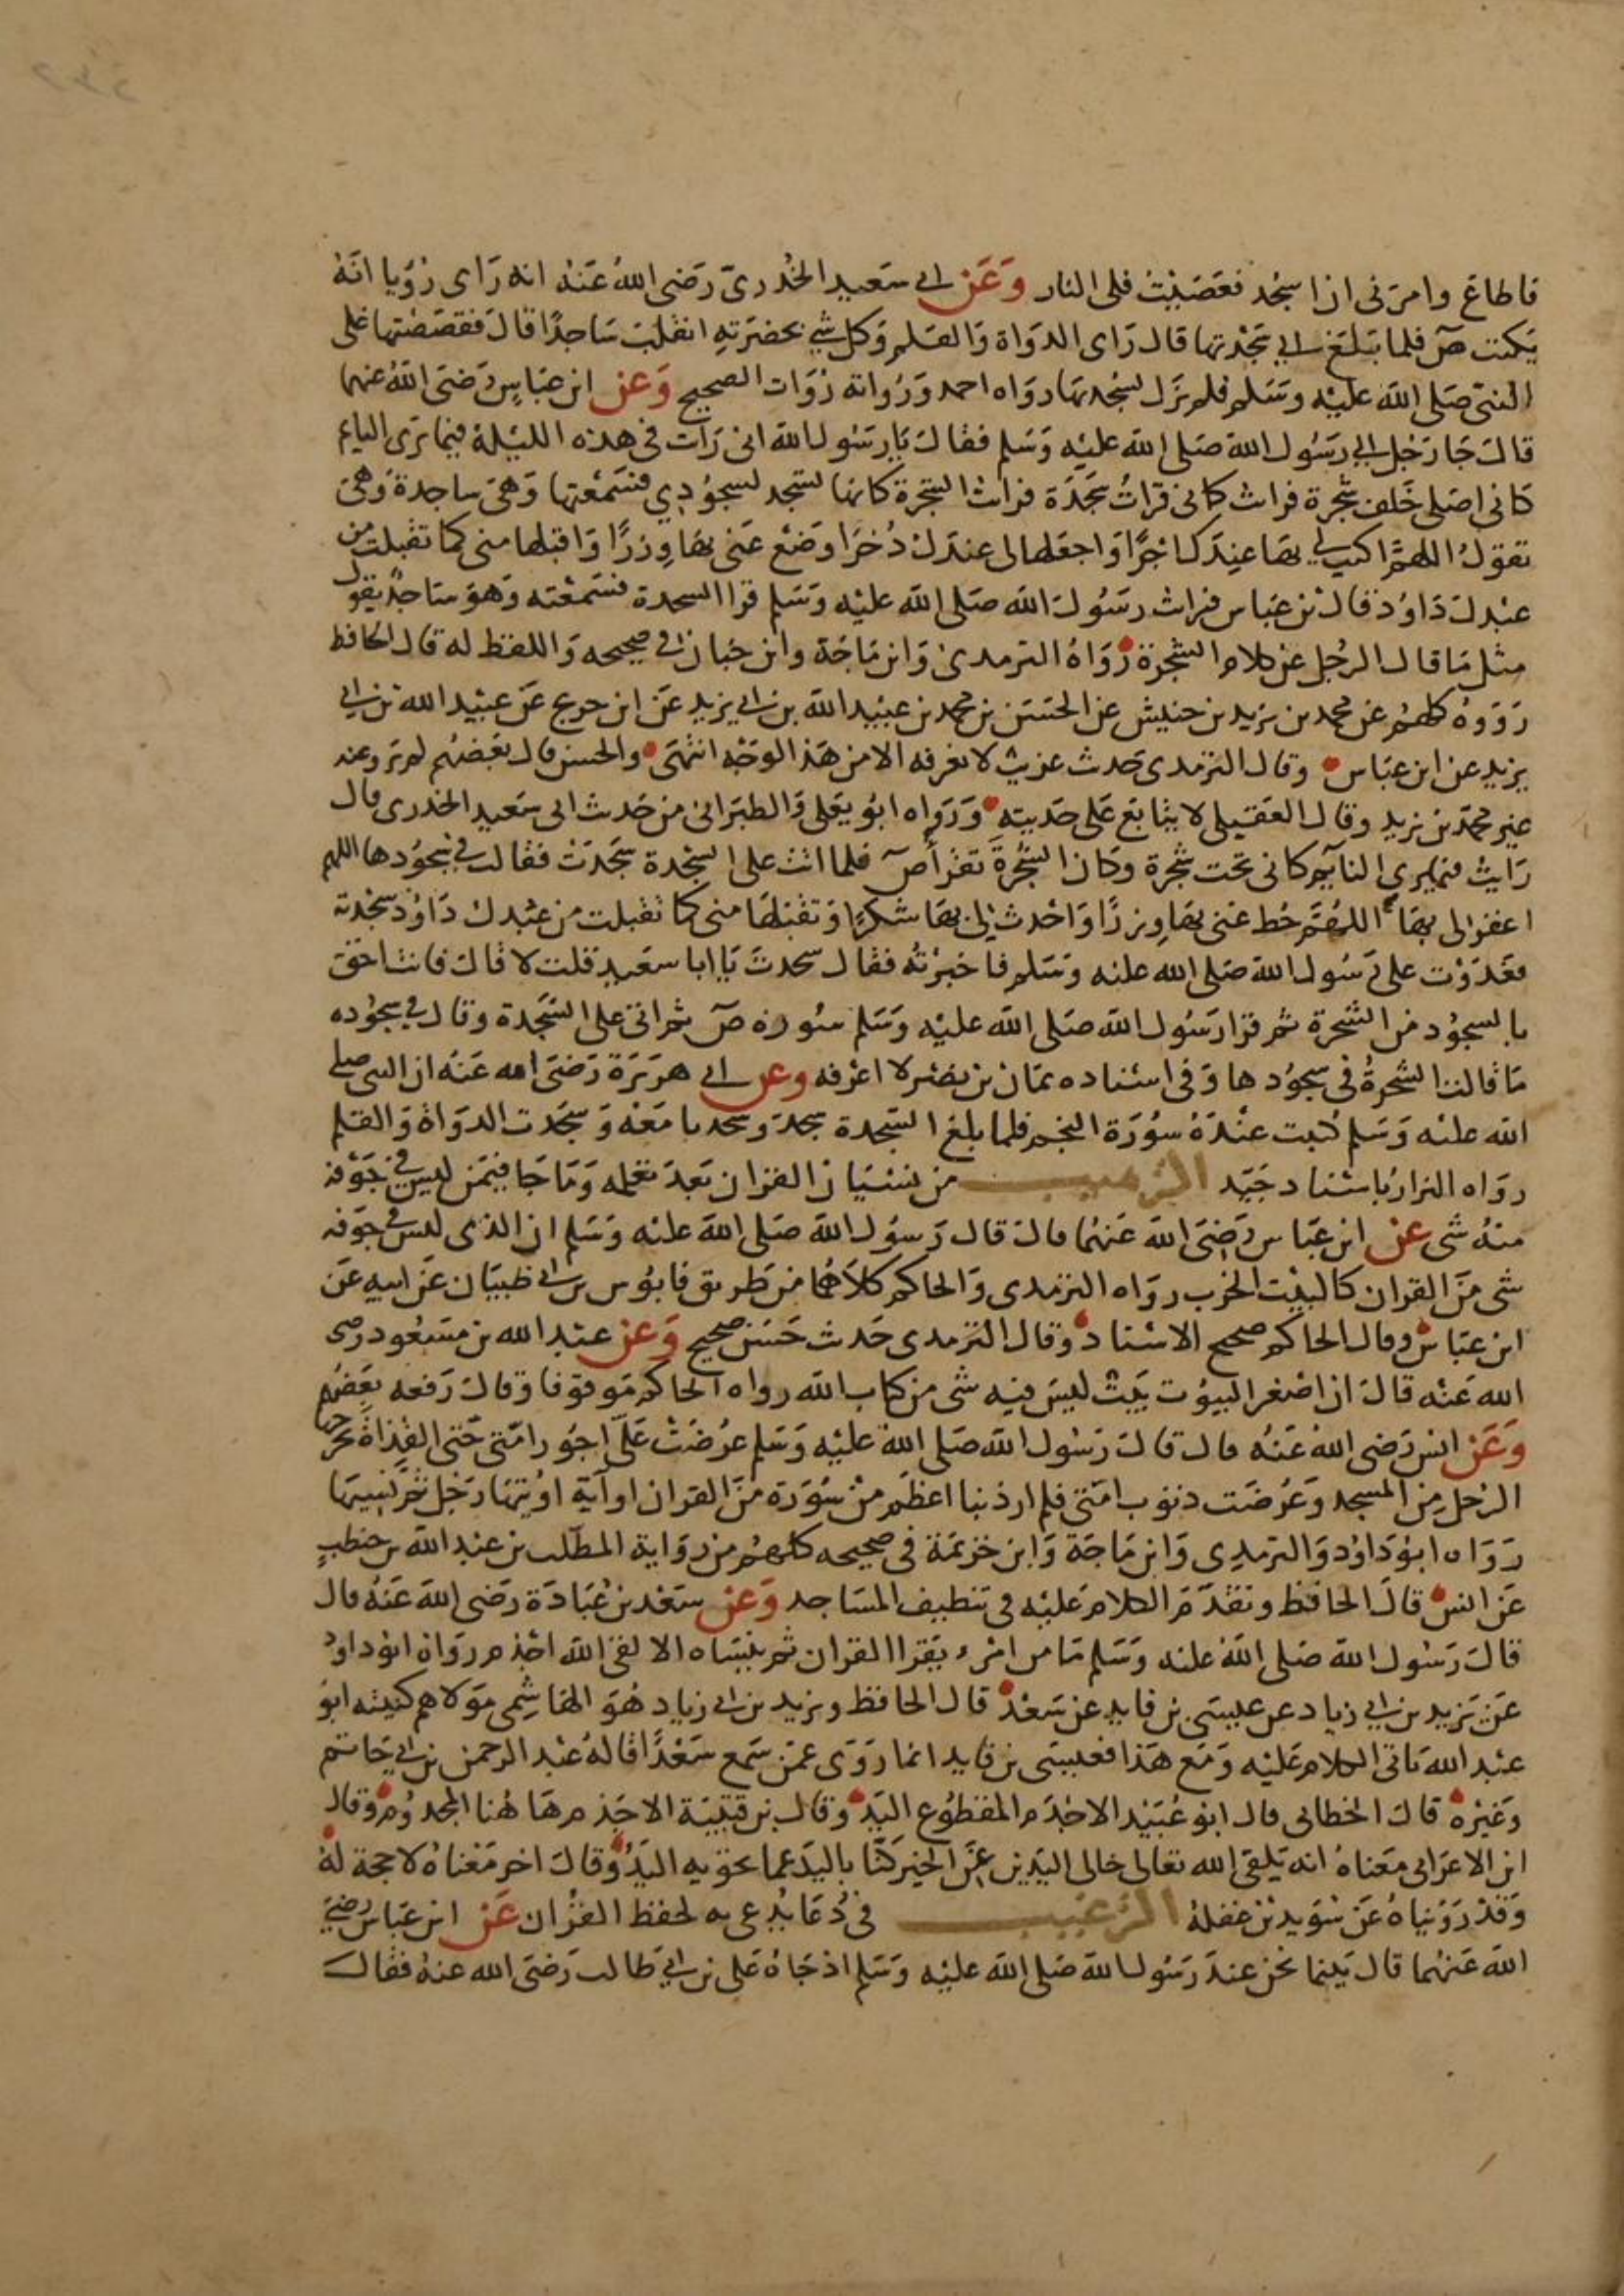 فاطاع وامرني ان اسجد فعصيت فلي النار وعن ابي سعيد الخدري رضي الله عنه انه راى رؤيا انه
يكتب ص فلما بلغ الى سجدتها قال راى الدواة والقلم وكل شي بحضرته انقلب ساجدا قال فقصصتها على
النبي صلى الله عليه وسلم فلم يزل يسجد بها رواه احمد ورواته رواة الصحيح وعن ابن عباس رضي الله عنهما
قال جا رجل الى رسول الله صلى الله عليه وسلم فقال يا رسول الله اني رات في هذه الليلة فيما يرى النايم
كاني اصلي خلف شجرة فرات كاني قرات سجدة فرات الشجرة كانها تسجد لسجودي فسمعتها وهي ساجدة وهي
تقول اللهم اكتب لي بها عندك اجرا واجعلها لي عندك ذخرا وضع عني بها وزرا واقبلها مني كما تقبلت من
عبدك داوود قال بن عباس فرات رسول الله صلى الله عليه وسلم قرا السجدة فسمعته وهو ساجد يقول
مثل ما قال الرجل عن كلام الشجرة رواه الترمدي وابن ماجة وابن حبان في صحيحه واللفظ له قال الحافظ
رووه كلهم عن محمد بن يزيد بن خنيش عن الحسن بن محمد بن عبيد الله بن ابي يزيد عن ابن جريج عن عبيد الله بن ابي
يزيد عن ابن عباس وقال الترمدي حدث غريب لا نعرفه الا من هذا الوجه انتهى والحسن قال بعضهم لم يرو عنه
غير محمد بن يزيد وقال العقيلي لا يتابع على حديته ورواه ابو يعلى والطبراني من حدث ابي سعيد الخدري قال
رايت فيما يرى النايم كاني تحت شجرة وكان الشجرة تقرأ ص فلما اتت على السجدة سجدت فقالت في سجودها اللهم
اغفر لي بها اللهم حط عني بها وزرا واحدث لي بها شكرا وتقبلها مني كما تقبلت من عبدك داوود سجدته
فغدوت على رسول الله صلى الله عليه وسلم فاخبرته فقال سجدت يا ابا سعيد قلت لا قال فانت احق
بالسجود من الشجرة ثم قرا رسول الله صلى الله عليه وسلم سورة ص ثم اتى على السجدة وقال في سجوده
ما قالت الشجرة في سجودها وفي اسناده عمان بن نضر لا اعرفه وعن ابي هريرة رضي الله عنه ان النبي صلى
الله عليه وسلم كتبت عنده سورة النجم فلما بلغ السجدة سجد وسجدنا معه وسجدت الدواة والقلم
رواه البزار باسناد جيد الترهيب من نسيان القران بعد تعلمه وما جا فيمن ليس في جوفه
منه شي عن ابن عباس رضي الله عنهما قال قال رسول الله صلى الله عليه وسلم ان الذي ليس في جوفه
شي من القران كالبيت الخرب رواه الترمدي والحاكم كلاهما من طريق قابوس بن ابي ظبيان عن ابيه عن
ابن عباس وقال الحاكم صحيح الاسناد وقال الترمدي حدث حسن صحيح وعن عبد الله بن مسعود رضي
الله عنه قال ان اصغر البيوت بيت ليس فيه شي من كتاب الله رواه الحاكم موقوفا وقال رفعه بعضهم
وعن انس رضي الله عنه قال قال رسول الله صلى الله عليه وسلم عرضت علي اجور امتي حتى القذاة يخرجها
الرجل من المسجد وعرضت دنوب امتي فلم ار ذنبا اعظم من سورة من القران او آية اوتيها رجل ثم نسيها
رواه ابو داود والترمدي وابن ماجة وابن خزيمة في صحيحه كلهم من رواية المطلب بن عبد الله بن حنطب
عن انس قال الحافظ وتقدم الكلام عليه في تنظيف المساجد وعن سعد بن عبادة رضي الله عنه قال
قال رسول الله صلى الله عليه وسلم ما من امرء يقرا القران ثم ينساه الا لقي الله اجذم رواه ابو داود
عن يزيد بن ابي زياد عن عيسى بن فايد عن سعد قال الحافظ ويزيد بن ابي زياد هو الهاشمي مولاهم كنيته ابو
عبد الله ياتي الكلام عليه ومع هذا فعيسى بن فايد انما روى عمن سمع سعدا قاله عبد الرحمن بن ابي حاتم
وغيره قال الخطابي قال ابو عبيد الاجذم المقطوع اليد وقال بن قتيبة الاجذم هاهنا المجذوم وقال
ابن الاعرابي معناه انه يلقى الله تعالى خالي اليدين عن الخير كنا باليد عما تحويه اليد وقال اخر معناه لا حجة له
وقد رويناه عن سويد بن غفلة الترغيب في دعا يدعى به لحفظ القران عن ابن عباس رضي
الله عنهما قال بينما نحن عند رسول الله صلى الله عليه وسلم اذ جاه علي بن ابي طالب رضي الله عنه فقال